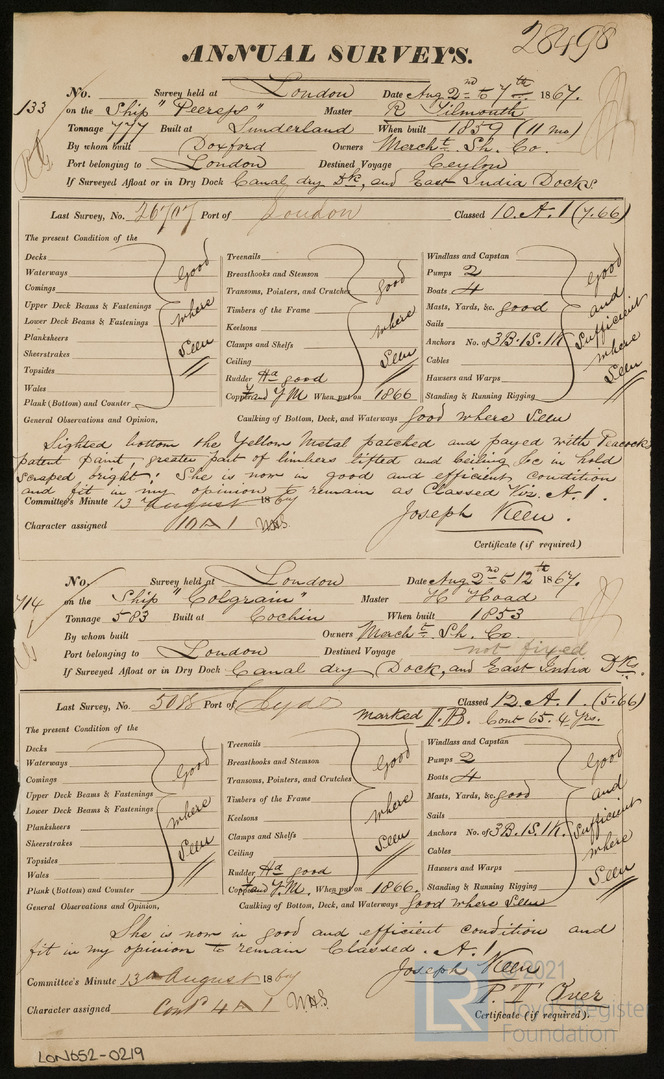 28498
ANNUAL SURVEYS.
No. Survey held at London Date Aug 2nd to 7th 1867.
133 on the Ship "Peereps" Master R Tilmouth
Tonnage 777 Built at Sunderland When built 1859 (11 mo)
By whom built Doxford Owners Mercht. Sh. Co.
Port belonging to London Destined Voyage Ceylon
If Surveyed Afloat or in Dry Dock Canal dry Dk, and East India Docks
Last Survey, No. 26707 Port of London Classed 10. A. 1 (7.66)
The present Condition of the
Decks
Waterways
Comings
Upper Deck Beams & Fastenings
Lower Deck Beams & Fastenings
Planksheers
Sheerstrakes
Topsides
Wales
Plank (Bottom) and Counter
Good where Seen
Treenails
Breasthooks and Stemson
Transoms, Pointers, and Crutches
Timbers of the Frame
Keelsons
Clamps and Shelfs
Ceiling
Rudder Hd good
Copper and Y.M When put on 1866
good where Seen
Windlass and Capstan
Pumps 2
Boats 4
Masts, Yards, &c. good
Sails
Anchors No. of 3B.1S.1K
Cables
Hawsers and Warps
Standing & Running Rigging
Good and Sufficient where Seen
General Observations and Opinion, Caulking of Bottom, Deck, and Waterways Good where Seen
Sighted bottom the Yellow Metal patched and payed with Peacocks
patent paint, greater part of limbers lifted and Ceiling &c in hold
scraped bright. She is now in good and efficient condition
and fit in my opinion to remain as Classed Viz. A. 1.
Committee's Minute 13th August 1867
Joseph Keen.
Character assigned 10 A 1 WHS
Certificate (if required)
No. Survey held at London Date Aug 2nd to 12th 1867.
714 on the Ship "Colgrain" Master H Hoad
Tonnage 583 Built at Cochin When built 1853
By whom built Owners Mercht. Sh. Co.
Port belonging to London Destined Voyage not fixed
If Surveyed Afloat or in Dry Dock Canal dry Dock, and East India Dks.
Last Survey, No. 508 Port of Clyde Classed 12. A. 1. (5.66)
Marked I.B. Cont 65. 4 yrs.
The present Condition of the
Decks
Waterways
Comings
Upper Deck Beams & Fastenings
Lower Deck Beams & Fastenings
Planksheers
Sheerstrakes
Topsides
Wales
Plank (Bottom) and Counter
Good where Seen
Treenails
Breasthooks and Stemson
Transoms, Pointers, and Crutches
Timbers of the Frame
Keelsons
Clamps and Shelfs
Ceiling
Rudder Hd good
Copper and Y.M. When put on 1866.
Good where Seen
Windlass and Capstan
Pumps 2
Boats 4
Masts, Yards, &c. good
Sails
Anchors No. of 3B.1S.1K.
Cables
Hawsers and Warps
Standing & Running Rigging
Good and Sufficient where Seen
General Observations and Opinion, Caulking of Bottom, Deck, and Waterways Good where Seen
She is now in good and efficient condition and
fit in my opinion to remain Classed. A. 1
Committee's Minute 13th August 1867
Joseph Keen
Character assigned Cont'd 4 A 1 WHS
Certificate (if required).
© 2021
LR
Lloyd's Register
Foundation
LON652-0219